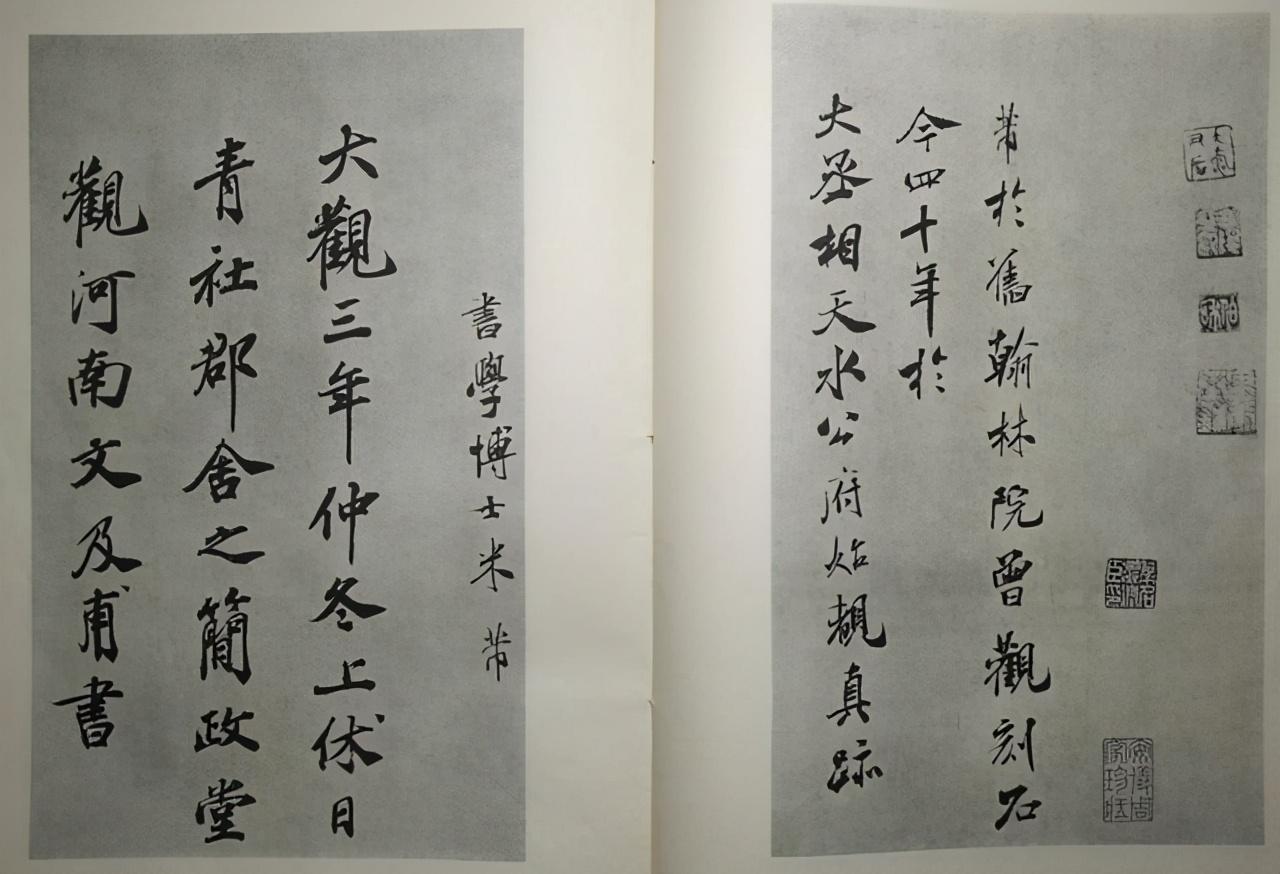 芾於舊翰林院曾觀刻石
今四十年於
大丞相天水公府始覩真跡
書學博士米芾
大觀三年仲冬上休日
青社郡舍之簡政堂
觀河南文及甫書